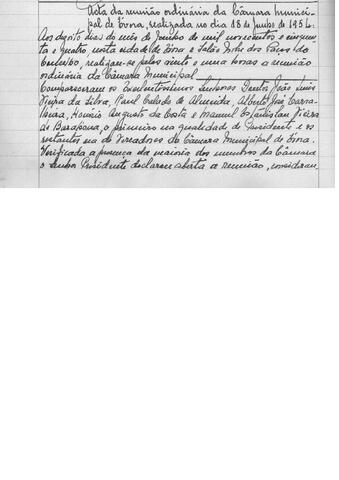 Acta da reunião ordinária da Câmara Munici-
pal de Évora, realizada no dia 18 de Junho de 1954.
Aos dezoito dias do mês de Junho de mil novecentos e cinquen-
ta e quatro, nesta cidade de Évora e Salão Nobre dos Paços do
Concelho, realizou-se pelas vinte e uma horas a reunião
ordinária da Câmara Municipal.
Compareceram os Excelentíssimos Senhores Doutor João Luís
Vieira da Silva, Calado de Almeida, Alberto José
Augusto da Costa e Manuel Vieira
de Barahona, o primeiro na qualidade de Presidente e os
restantes na de Vereadores da Câmara Municipal de Évora.
Verificada a presença da maioria dos membros da Câmara
o Senhor Presidente declarou aberta a reunião,